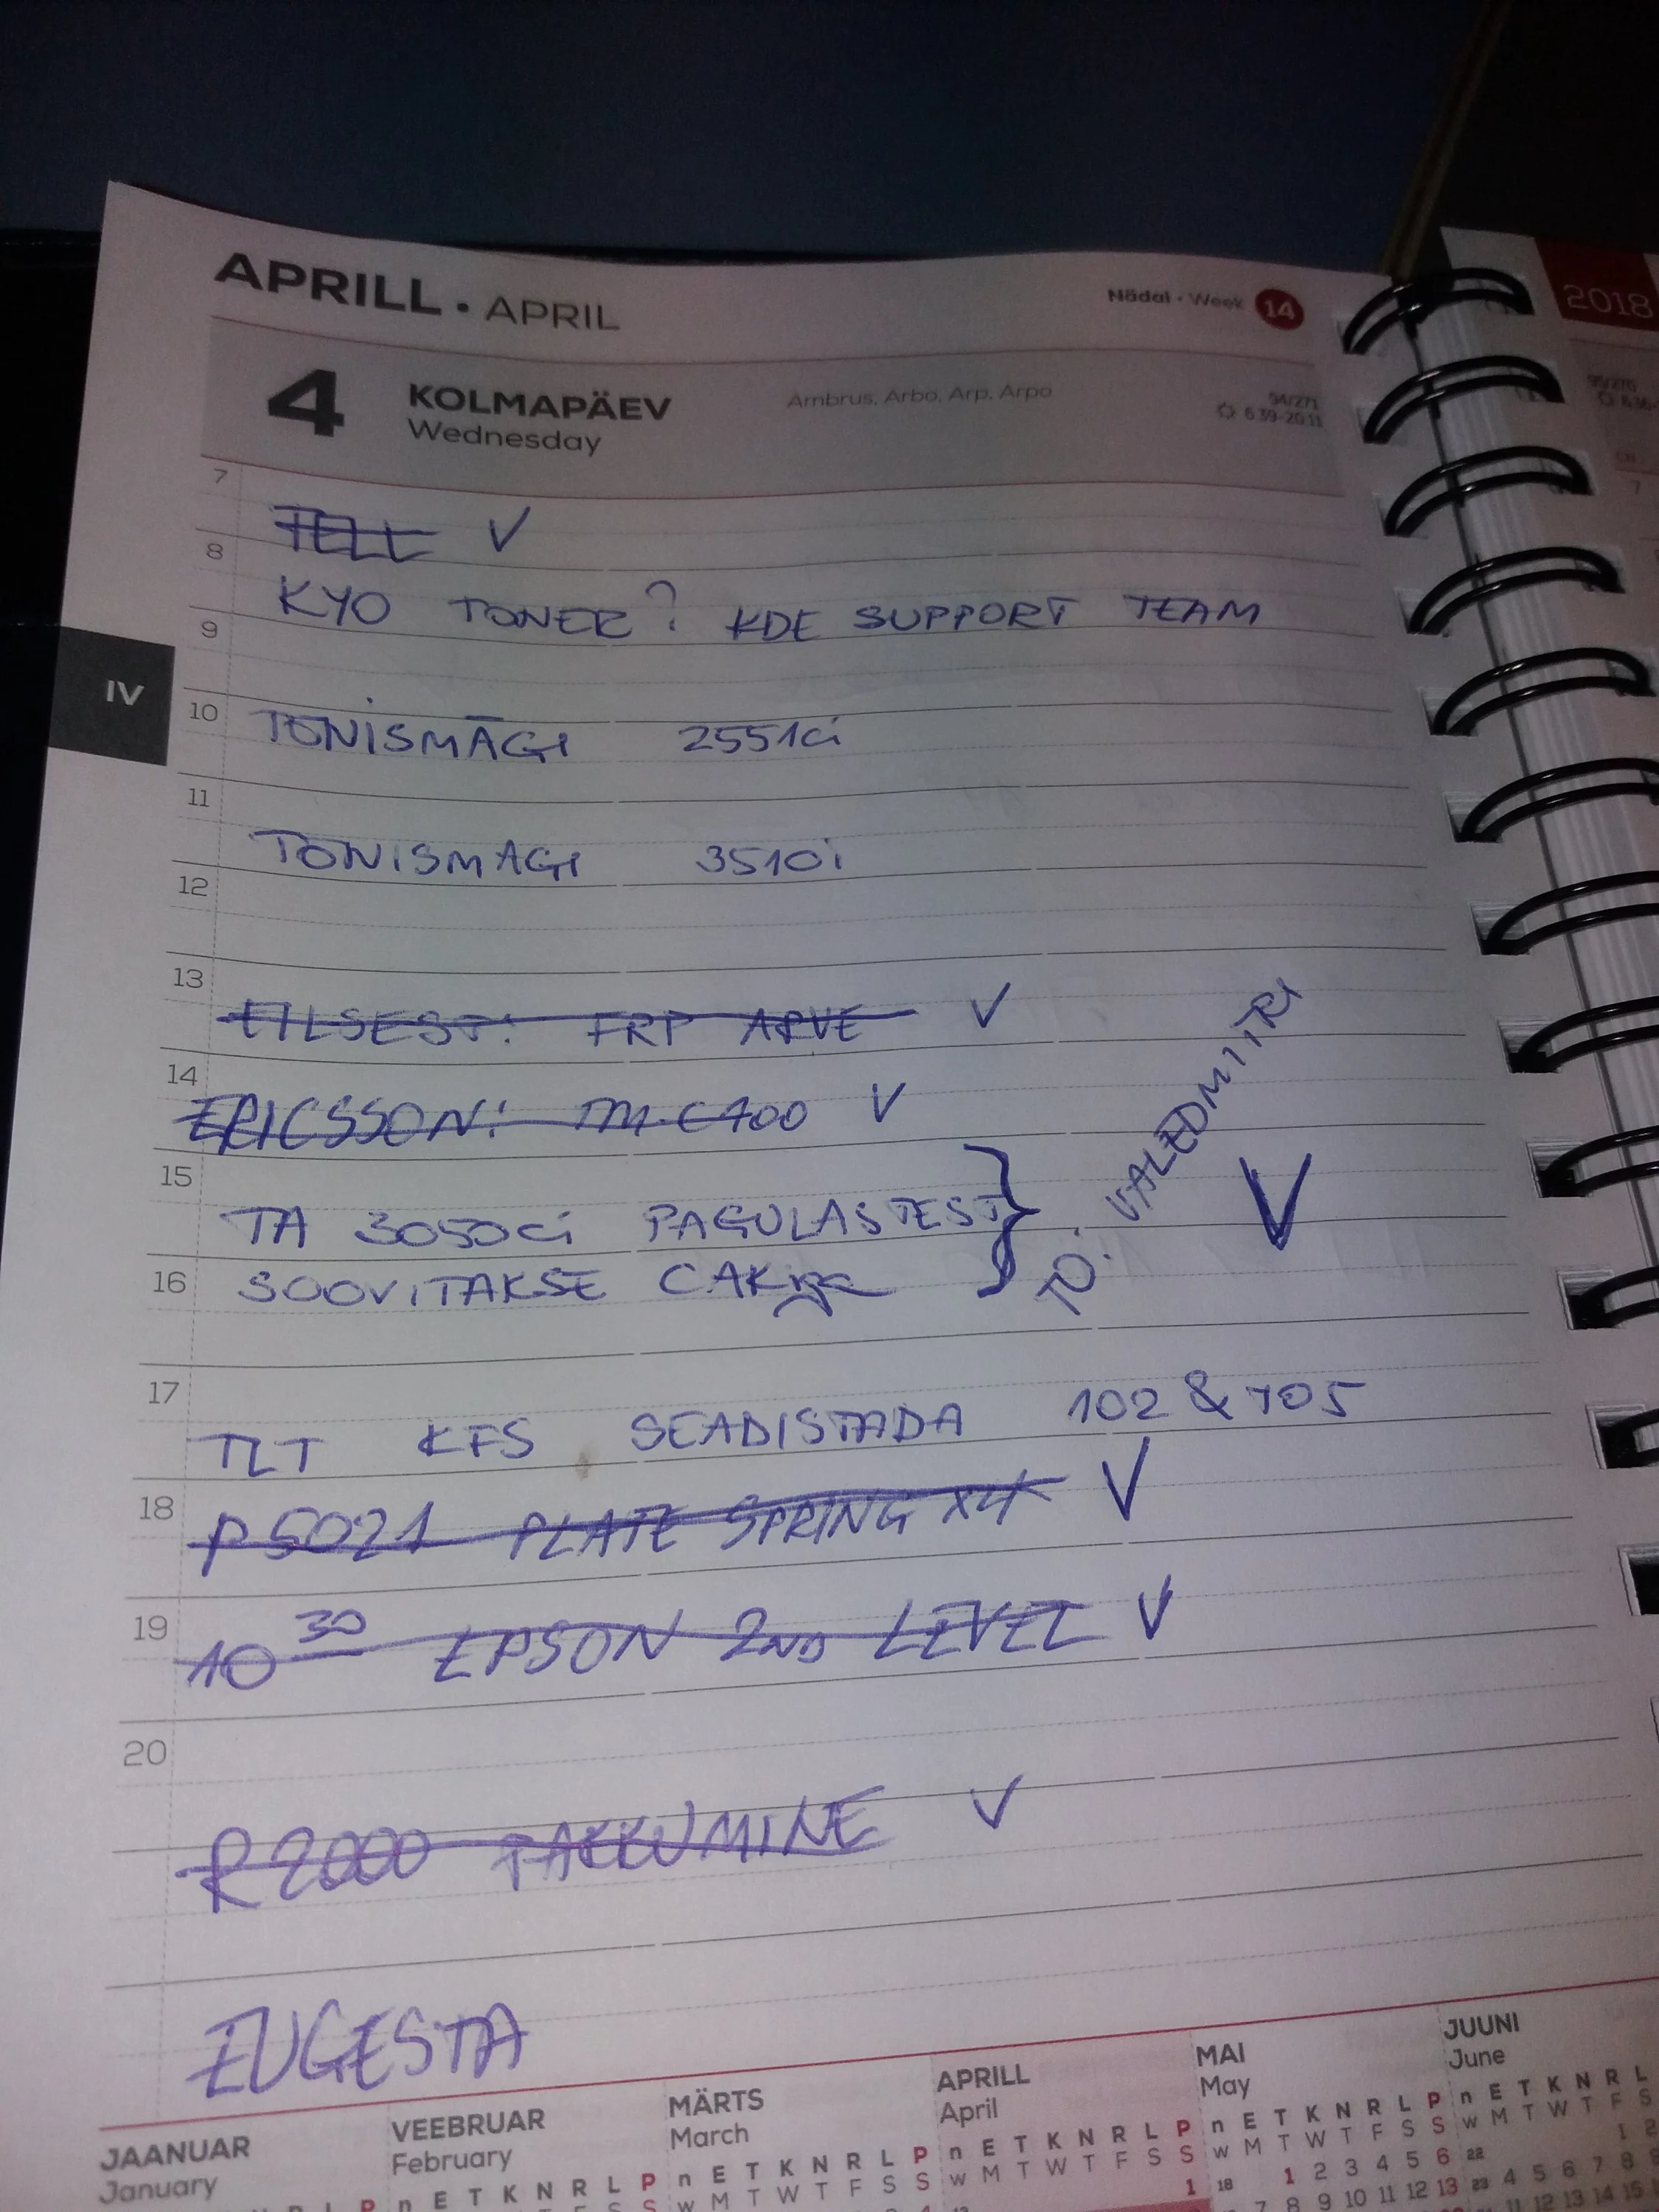 APRILL • APRIL
Nädal • Week 14
2018
4 KOLMAPÄEV
Wednesday
Ambrus, Arbo, Arp, Arpo
94/271
6.39-20.11
7
TELL V
8
KYO TONER? KDE SUPPORT TEAM
9
IV
10
TONISMÄGI 2551ci
11
TONISMAGI 3510i
12
13
EILSEST: FRP ARVE V
14
ERICSSON: V
15
TA 3050ci PAGULASTEST
16
SOOVITAKSE
TO: VALEDMITRI V
17
TLT KFS SEADISTADA 102 & 705
18
P5021 PLATE SPRING X4 V
19
10 30 EPSON 2ND LEVEL V
20
R2000 PAKKUMINE V
EUGESTA
JAANUAR
January
VEEBRUAR
February
MÄRTS
March
APRILL
April
MAI
May
JUUNI
June
n E T K N R L P
w M T W T F S S
1 18 1 2 3 4 5 6 22
7 8 9 10 11 12 13 23 4 5 6 7 8